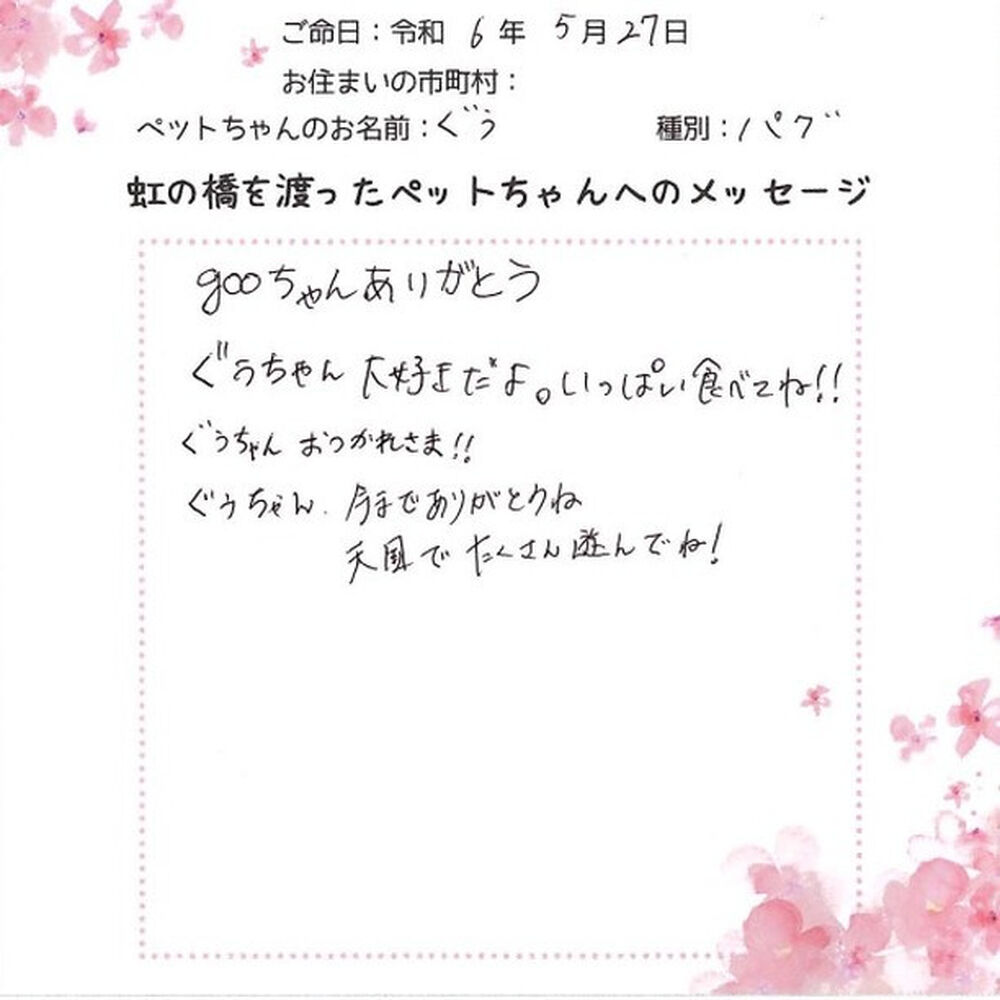 ご命日：令和 6 年 5 月 27日
お住まいの市町村：
ペットちゃんのお名前：ぐぅ 種別：パグ
虹の橋を渡ったペットちゃんへのメッセージ
gooちゃんありがとう
ぐぅちゃん 大好きだよ。いっぱい食べてね!!
ぐぅちゃん おつかれさま!!
ぐぅちゃん. 今までありがとうね
天国で たくさん遊んでね!